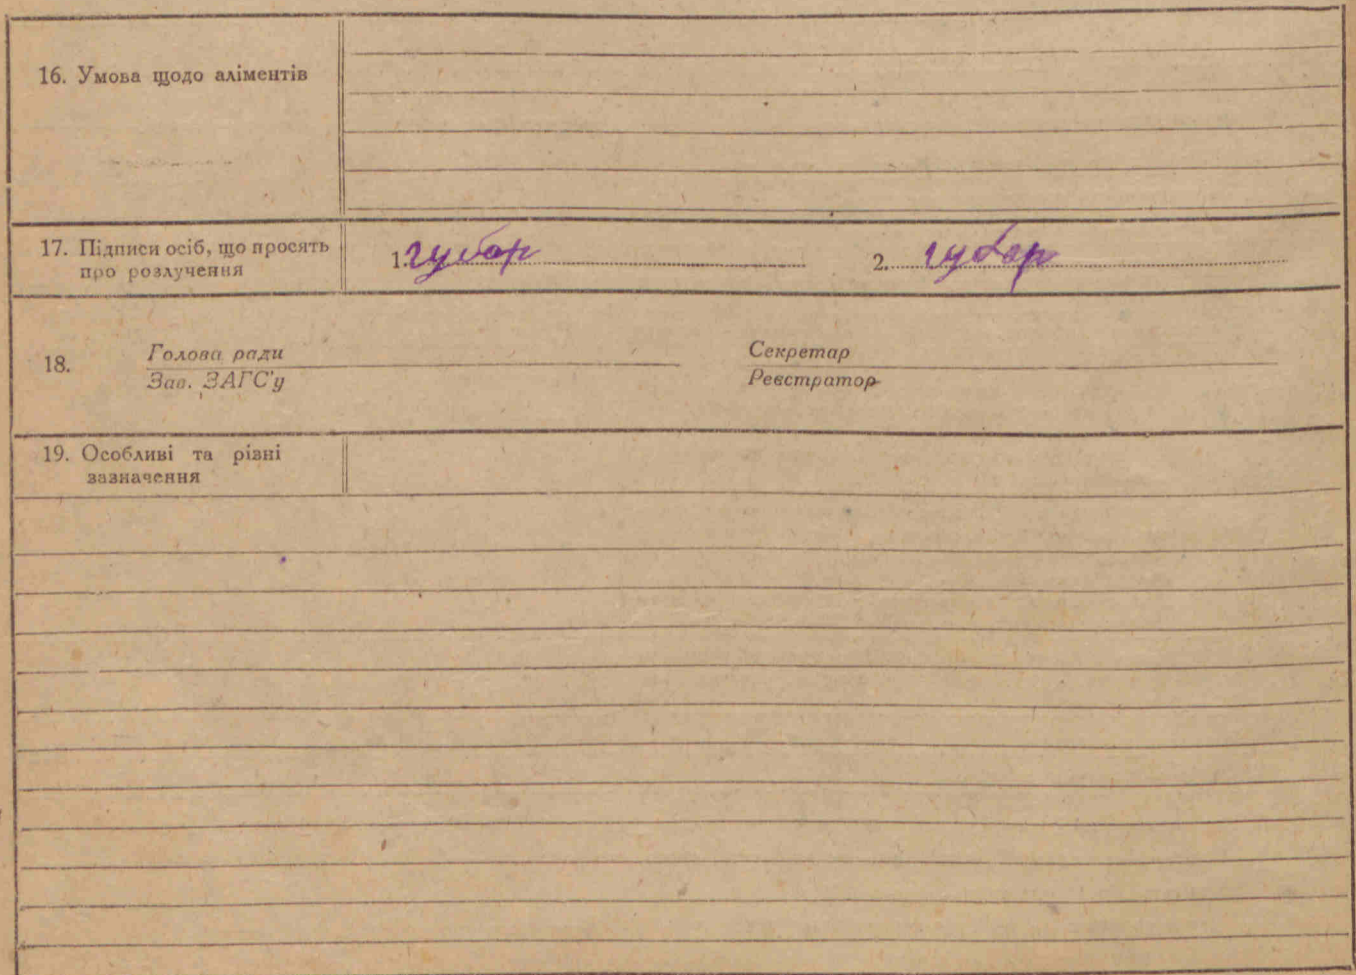 16. Умова щодо аліментів
17. Підписи осіб, що просять
про розлучення
1. губар 2. губар
18. Голова ради Секретар
Зав. ЗАГС'у Реєстратор
19. Особливі та різні
зазначення